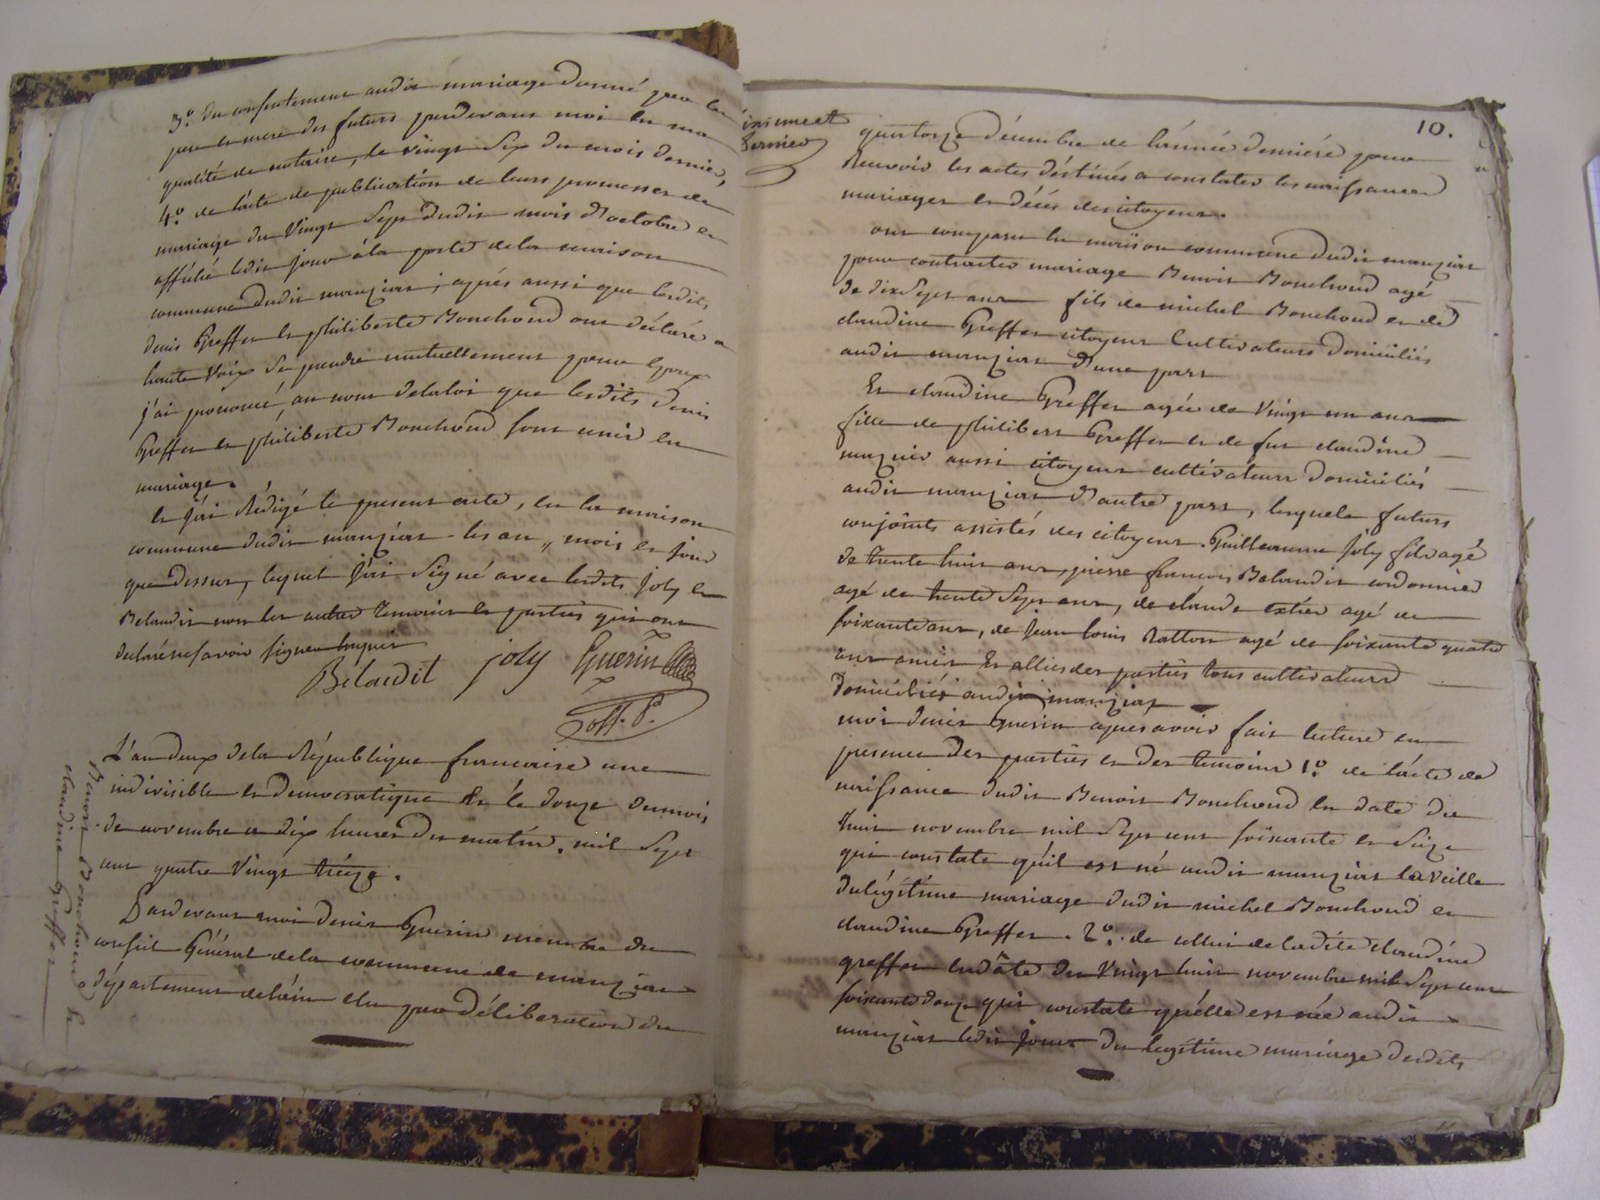 3.º du consentement audit mariage donné par les
pere et mere des futurs pardevant moi en ma
qualité de notaire, le vingt six du mois dernier,
4.º de l'acte de publication de leurs promesses de
mariage du vingt sept dudit mois d'octobre et
affiché ledit jour à la porte de la maison
commune dudit manziat; après aussi que lesdits
denis Greffet et philiberte Bouchoud ont déclaré a
haute voix se prendre mutuellement pour Epoux
j'ai prononcé, au nom de la loi que lesdits denis
Greffet et philiberte Bouchoud sont unis en
mariage.
et j'ai rédigé le present acte, en la maison
commune dudit manziat les an, mois et jour
que dessus, lequel j'ai signé avec lesdits joly et
Belaudit non les autres temoins et parties qui ont
declaré ne savoir signer enquis
Belaudit joly Guerin
Off. P.
L'an deux de la République francaise une
indivisible et democratique et le douze du mois
de novembre a dix heures du matin. mil sept
cent quatre vingt treize.
Pardevant moi denis Guerin membre du
conseil Général de la commune de manziat
département de l'ain elu par déliberation du
Benoit Bouchoud et
claudine Greffet
10.
quatorze décembre de l'année derniere pour
Recevoir les actes déstinés a constater les naissances
mariages et décés des citoyens.
ont comparu en la maison commune dudit manziat
pour contracter mariage Benoit Bouchoud agé
de dix sept ans fils de michel Bouchoud et de
claudine Greffet citoyens Cultivateurs domiciliés
audit manziat d'une part
Et claudine Greffet agée de vingt un ans
fille de philibert Greffet et de fut claudine
aussi citoyens cultivateurs domiciliés
audit manziat d'autre part, lesquels futurs
conjoints assistés des citoyens Guillaume joly fils agé
de trente huit ans, pierre francois Belaudit cordonnier
agé de trente sept ans, de claude agé de
soixante ans, de jean louis agé de soixante quatre
ans amis Et alliés des parties tous cultivateurs
domiciliés audit manziat
moi denis Guerin après avoir fait lecture en
presence des parties et des temoins 1.º de l'acte de
naissance dudit Benoit Bouchoud en date du
huit novembre mil sept cent soixante et seize
qui constate qu'il est né audit manziat la veille
du légitime mariage dudit michel Bouchoud et
claudine Greffet. 2.º de celui de ladite claudine
greffet en date du vingt huit novembre mil sept cent
soixante douze qui constate qu'elle est née audit
manziat ledit jour du legitime mariage desdits